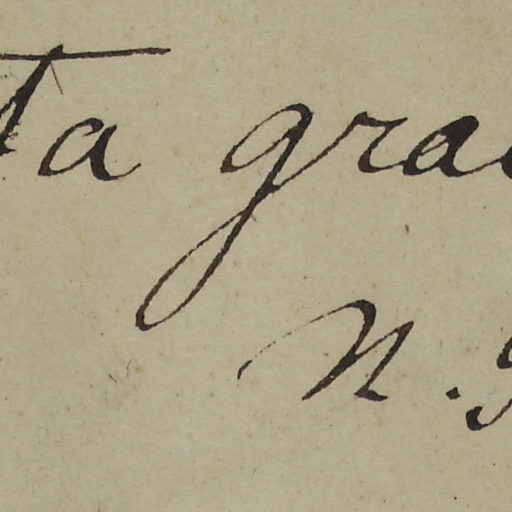 ta gra
N.